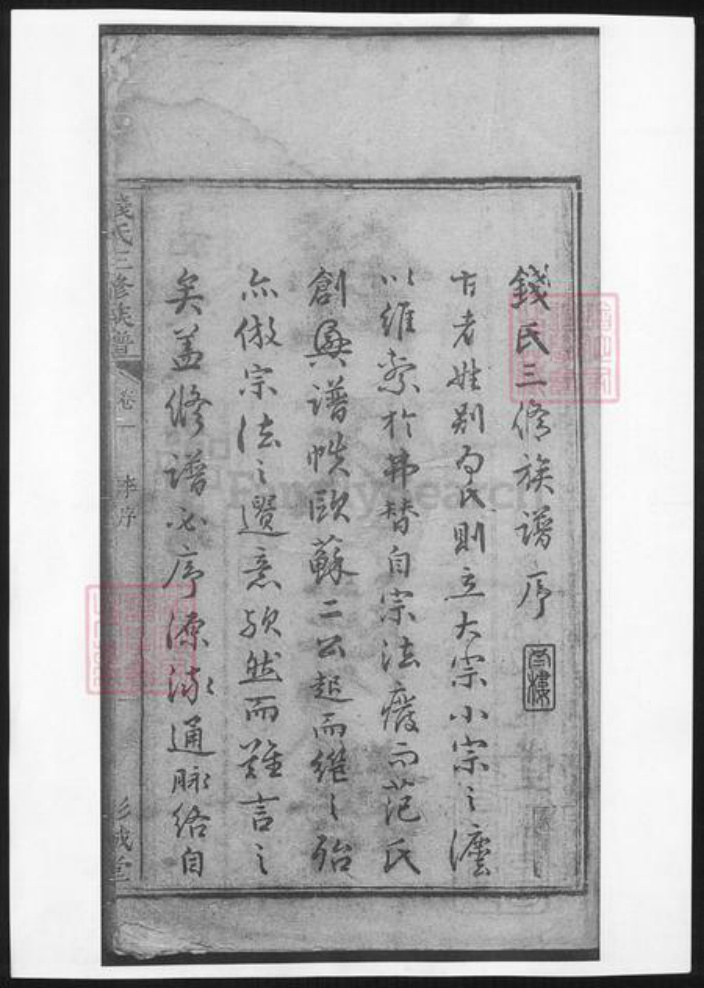 錢氏三修族譜序
古者姓別爲氏則立大宗小宗之灋
以維系於弗替自宗法癈而范氏
創興譜帙歐蘇二公起而繼之殆
亦倣宗法之遺意歟然而難言之
矣盖修譜必序源流通脉络自
錢氏三修族譜
卷一
序
彭城堂
FamilySearch